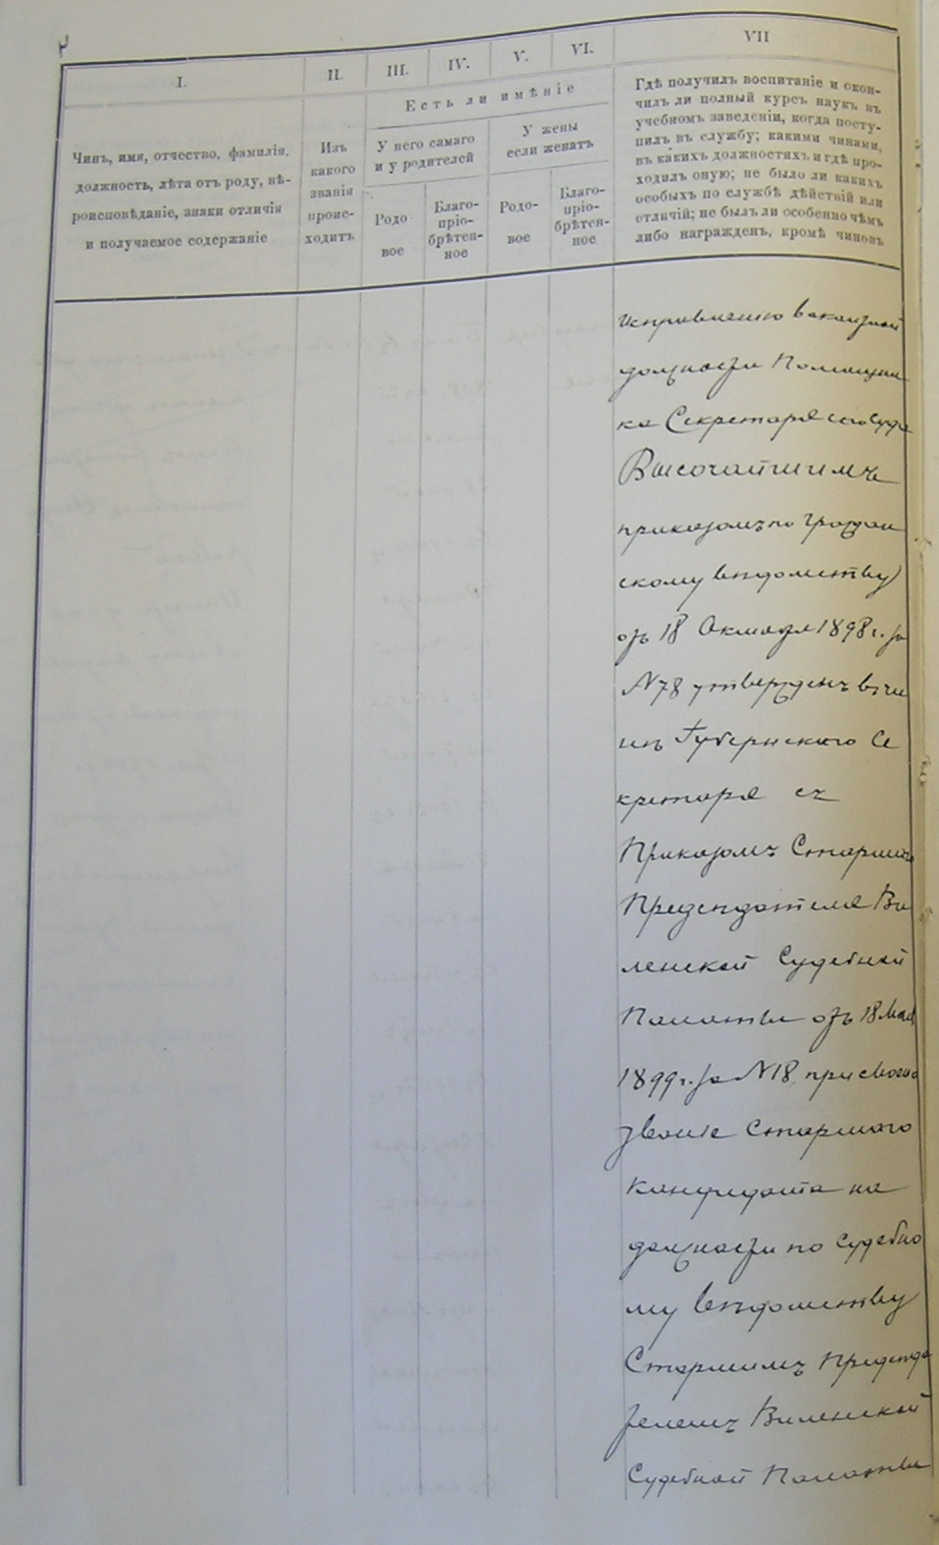 I.
II.
III.
IV.
V.
VI.
VII
Чинъ, имя, отчество, фамилія,
должность, лѣта отъ роду, вѣ-
роисповѣданіе, знаки отличія
и получаемое содержаніе
Изъ
какого
званія
проис-
ходитъ
Есть ли имѣніе
У него самаго
и у родителей
У жены
если женатъ
Родо-
вое
Благо-
пріо-
брѣтен-
ное
Родо-
вое
Благо-
пріо-
брѣтен-
ное
Гдѣ получилъ воспитаніе и окон-
чилъ ли полный курсъ наукъ въ
учебномъ заведеніи, когда посту-
пилъ въ службу; какими чинами,
въ какихъ должностяхъ и гдѣ про-
ходилъ оную; не было ли какихъ
особыхъ по службѣ дѣйствій или
отличій; не былъ ли особенно чѣмъ
либо награжденъ, кромѣ чиновъ
исправленію вакантной
должности Помощни
ка Секретаря сего Суда
Высочайшимъ
приказомъ по граждан
скому вѣдомству
отъ 18 Октября 1898 г. за
N 78 утвержденъ въ чи
нѣ Губернскаго Се
кретаря съ
Приказомъ Старшаго
Предсѣдателя Ви
ленской Судебной
Палаты отъ 18 Мая
1899 г. за N 18 присвоено
званіе Старшаго
Кандидата на
должности по судебно
му вѣдомству
Старшимъ Предсѣда
телемъ Виленской
Судебной Палаты